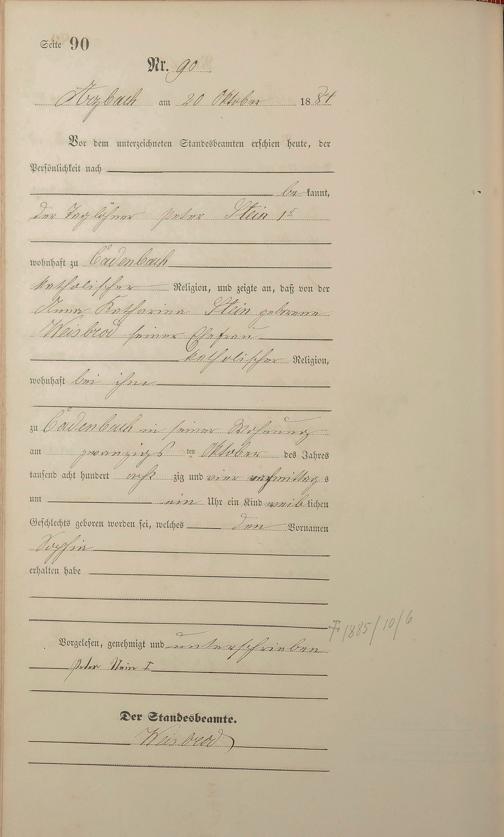 Seite 90
Nr. 90
Arzbach am 20 Oktober 1884
Vor dem unterzeichneten Standesbeamten erschien heute, der
Persönlichkeit nach
bekannt,
der Taglöhner Peter Stein 1r
wohnhaft zu Cadenbach
katholischer Religion, und zeigte an, daß von der
Anna Katharina Stein geborene
Weisbrod seiner Ehefrau
katholischer Religion,
wohnhaft bei ihm
zu Cadenbach in seiner Wohnung
am zwanzigsten Oktober des Jahres
tausend acht hundert acht zig und vier vormittags
um ein Uhr ein Kind weiblichen
Geschlechts geboren worden sei, welches den Vornamen
Sophia
erhalten habe
Vorgelesen, genehmigt und unterschrieben
Peter Stein I
Der Standesbeamte.
Weisbrod
1885/10/6